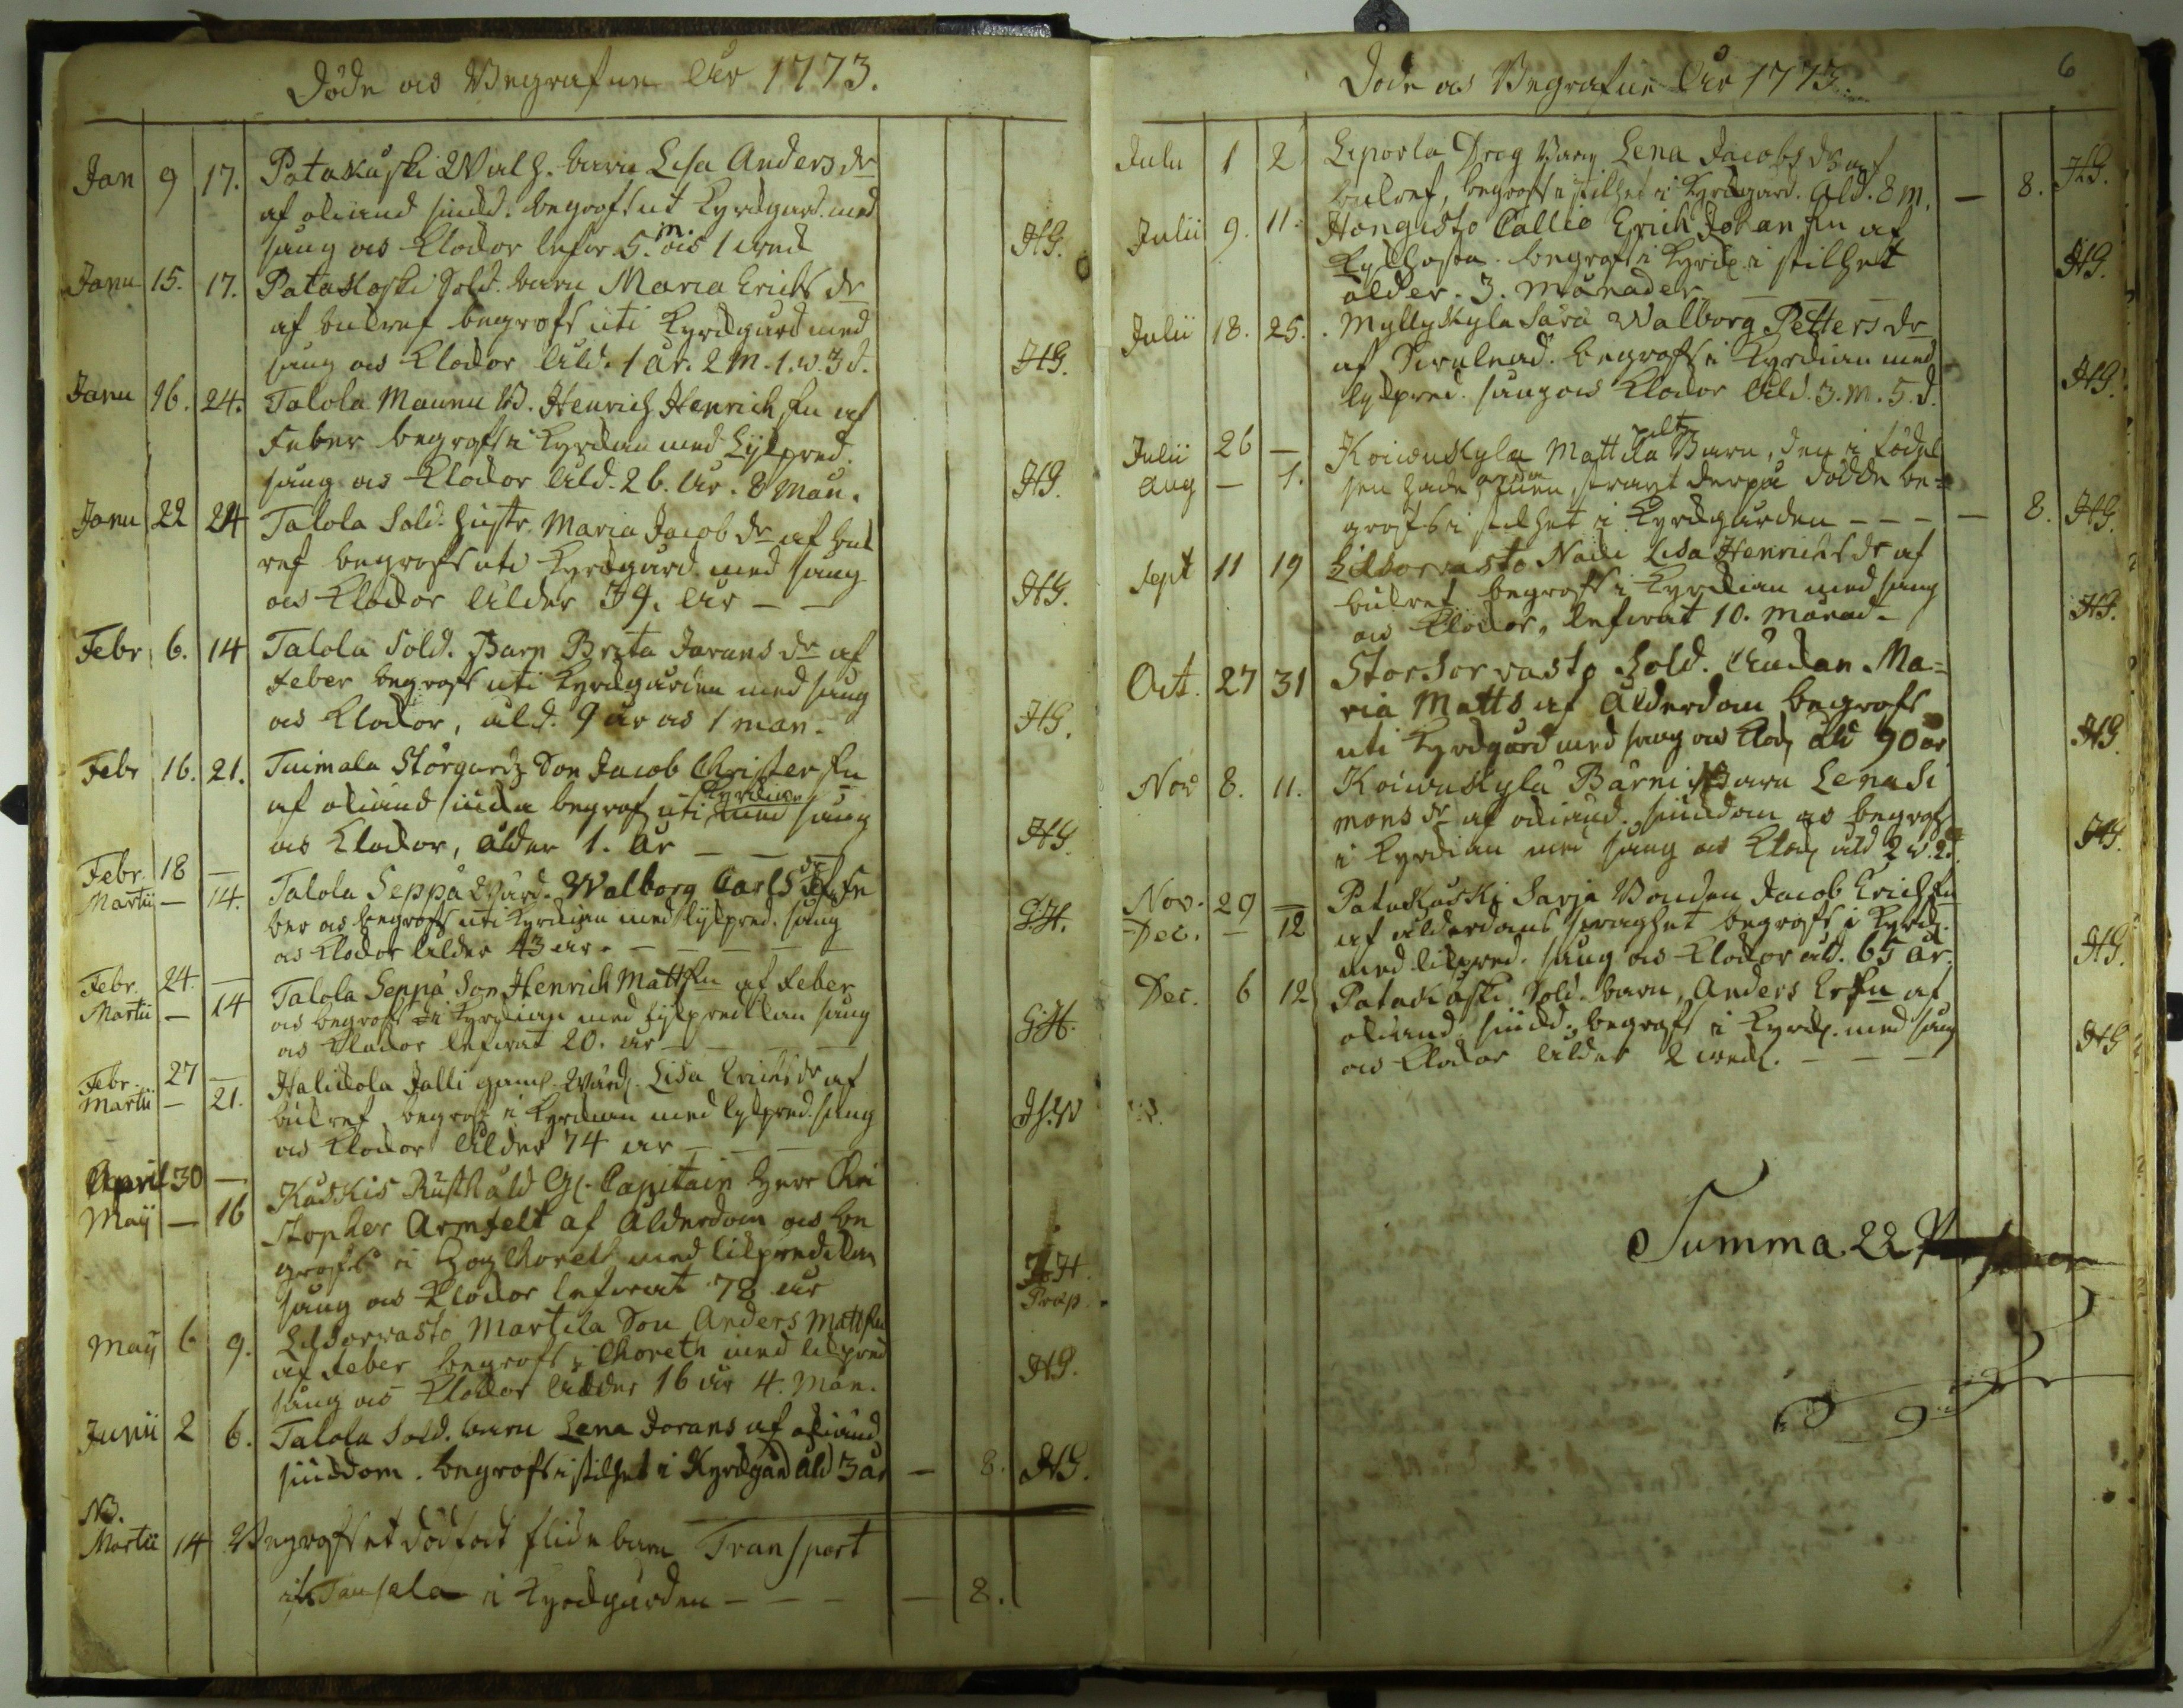 Döde och Begrafne Åhr 1773.
Jan 9 17. Patakåski Walh. barn Lisa Anders dr
af okiänd siukd. begrofs ut Kyrckgård. med
sång och Klockor lefvr. 5. m. och 1 weck HG.
Janu 15. 17. Pataskoski Sold. barn Maria Erichs dr
af buckref begrofs uti Kyrckgård med
sång och Klockor Åld. 1 år. 2 M. 1. w. 3 d. HG.
Janu 16. 24. Talola Maunu Henrich Henrich sn af
Feber begrofs i Kyrckan med Lijkpred.
sång och Klockor Åld. 26. År. 8 Mån. HG.
Janu 22 24 Talola Sold. hustr. Maria Jacob dr af
ref begrofs uti Kyrckgård. med sång
och Klockor Ålder 39. År — — HG.
Febr 6. 14 Talola Sold. Barn Brita Jorans dr af
feber begrofs uti Kyrckgården med sång
och Klockor, åld. 9 år och 1 mån. HG.
Febr 16. 21. Tuimala Storgårdz Son Jacob Christer sn
af okiänd siucka begrof uti Kyrckian med sång
och Klockor, ålder 1. År — — — HG.
Febr. 18 — Talola Seppä Wärd. Walborg Carls dr af fe
Martii — 14. ber och begrofs uti Kyrckian med lijkpred. sång
och Klockor Ålder 43 år. — — — G.H.
Febr. 24. — Talola Seppä Son Henrich Matt sn af feber
Martii — 14 och begrofs i Kyrckian med lijkpredikan sång
och Klockor lefwat 20. år — — — G.H.
Febr. 27 — Halickola Jalli gaml. Wärd. Lisa Erichs dr af
Martii — 21. buckref begrofs i Kyrckian med lijkpred. sång
och Klockor Ålder 74 år — — —
April 30 — Kåskis Rusthåld Gl. Capitain Herr Chri
Maij — 16 stopher Armfelt af Ålderdom och be
grofs i Hog Choret med likpredikan
sång och Klockor lefwat 78 år H. Præp.
Maij 6 9. Lillsorvasto Martila Son Anders Matt sn
af feber begrofs i Choreth med likpred
sång och Klockor Ålder 16 år 4. Mån. HG.
Junii 2 6. Talola Sold. barn Lena Jorans af okiänd
siuckdom. begrofs i stilhet i Kyrckgård åld 3 år — 8. HG.
NB.
Martii 14 Begrofs et dödfödt flicke barn Transport
ifr. Tansala i Kyrckgården — — — — 8.
6
Döde och Begrafne Åhr 1773.
Julii 1 2 Liporla Dreg Barn Lena Jacobs dr af
buckref, begrofs i stilhet i Kyrckgård. Åld. 8 m. — 8. HG.
Julii 9. 11. Hongisto Callio Erich Johan sn af
begrofs i Kyrck. i stilhet
ålder. 3. månader — — — HG.
Julii 18. 25. Myllykylä Walborg Petters dr
af begrofs i Kyrckian med
lijkpred. sång och Klockor Åld. 3. M. 5. d. HG.
Julii 26 — Koiwukylä Mattila pilt Barn, den i födel
Aug — 1. sen hade straxt derpå dödde be-
grofs i stilhet i Kyrckgården — — — — 8. HG.
Sept 11 19 Lillsorvasto Lisa Henrichs dr af
buckref begrofs i Kyrckian med sång
och Klockor, lefwat 10. månad — HG.
Oct. 27 31 Storsorvasto Sold. Änckan Ma=
ria Matts af Ålderdom begrofs
uti Kyrckgård med sång och Klock åld 90 år HG.
Nov 8. 11. Koiwukylä Bärni Barn Lena Si
mons dr af okiänd. siuckdom och begrof
i Kyrckian med sång och Klock åld 2 w. 2 d. HG.
Nov. 29 — Patakåski Sarja Bonden Jacob Erich sn
Dec. — 12 af ålderdoms swaghet begrofs i Kyrck.
med likpred. sång och Klockor åld. 65 år. HG.
Dec. 6 12 Patakåski Sold. barn, Anders Er sn af
okiänd siuckd. begrofs i Kyrck. med sång
och Klockor Ålder 2 weck. — — — HG
Summa 22